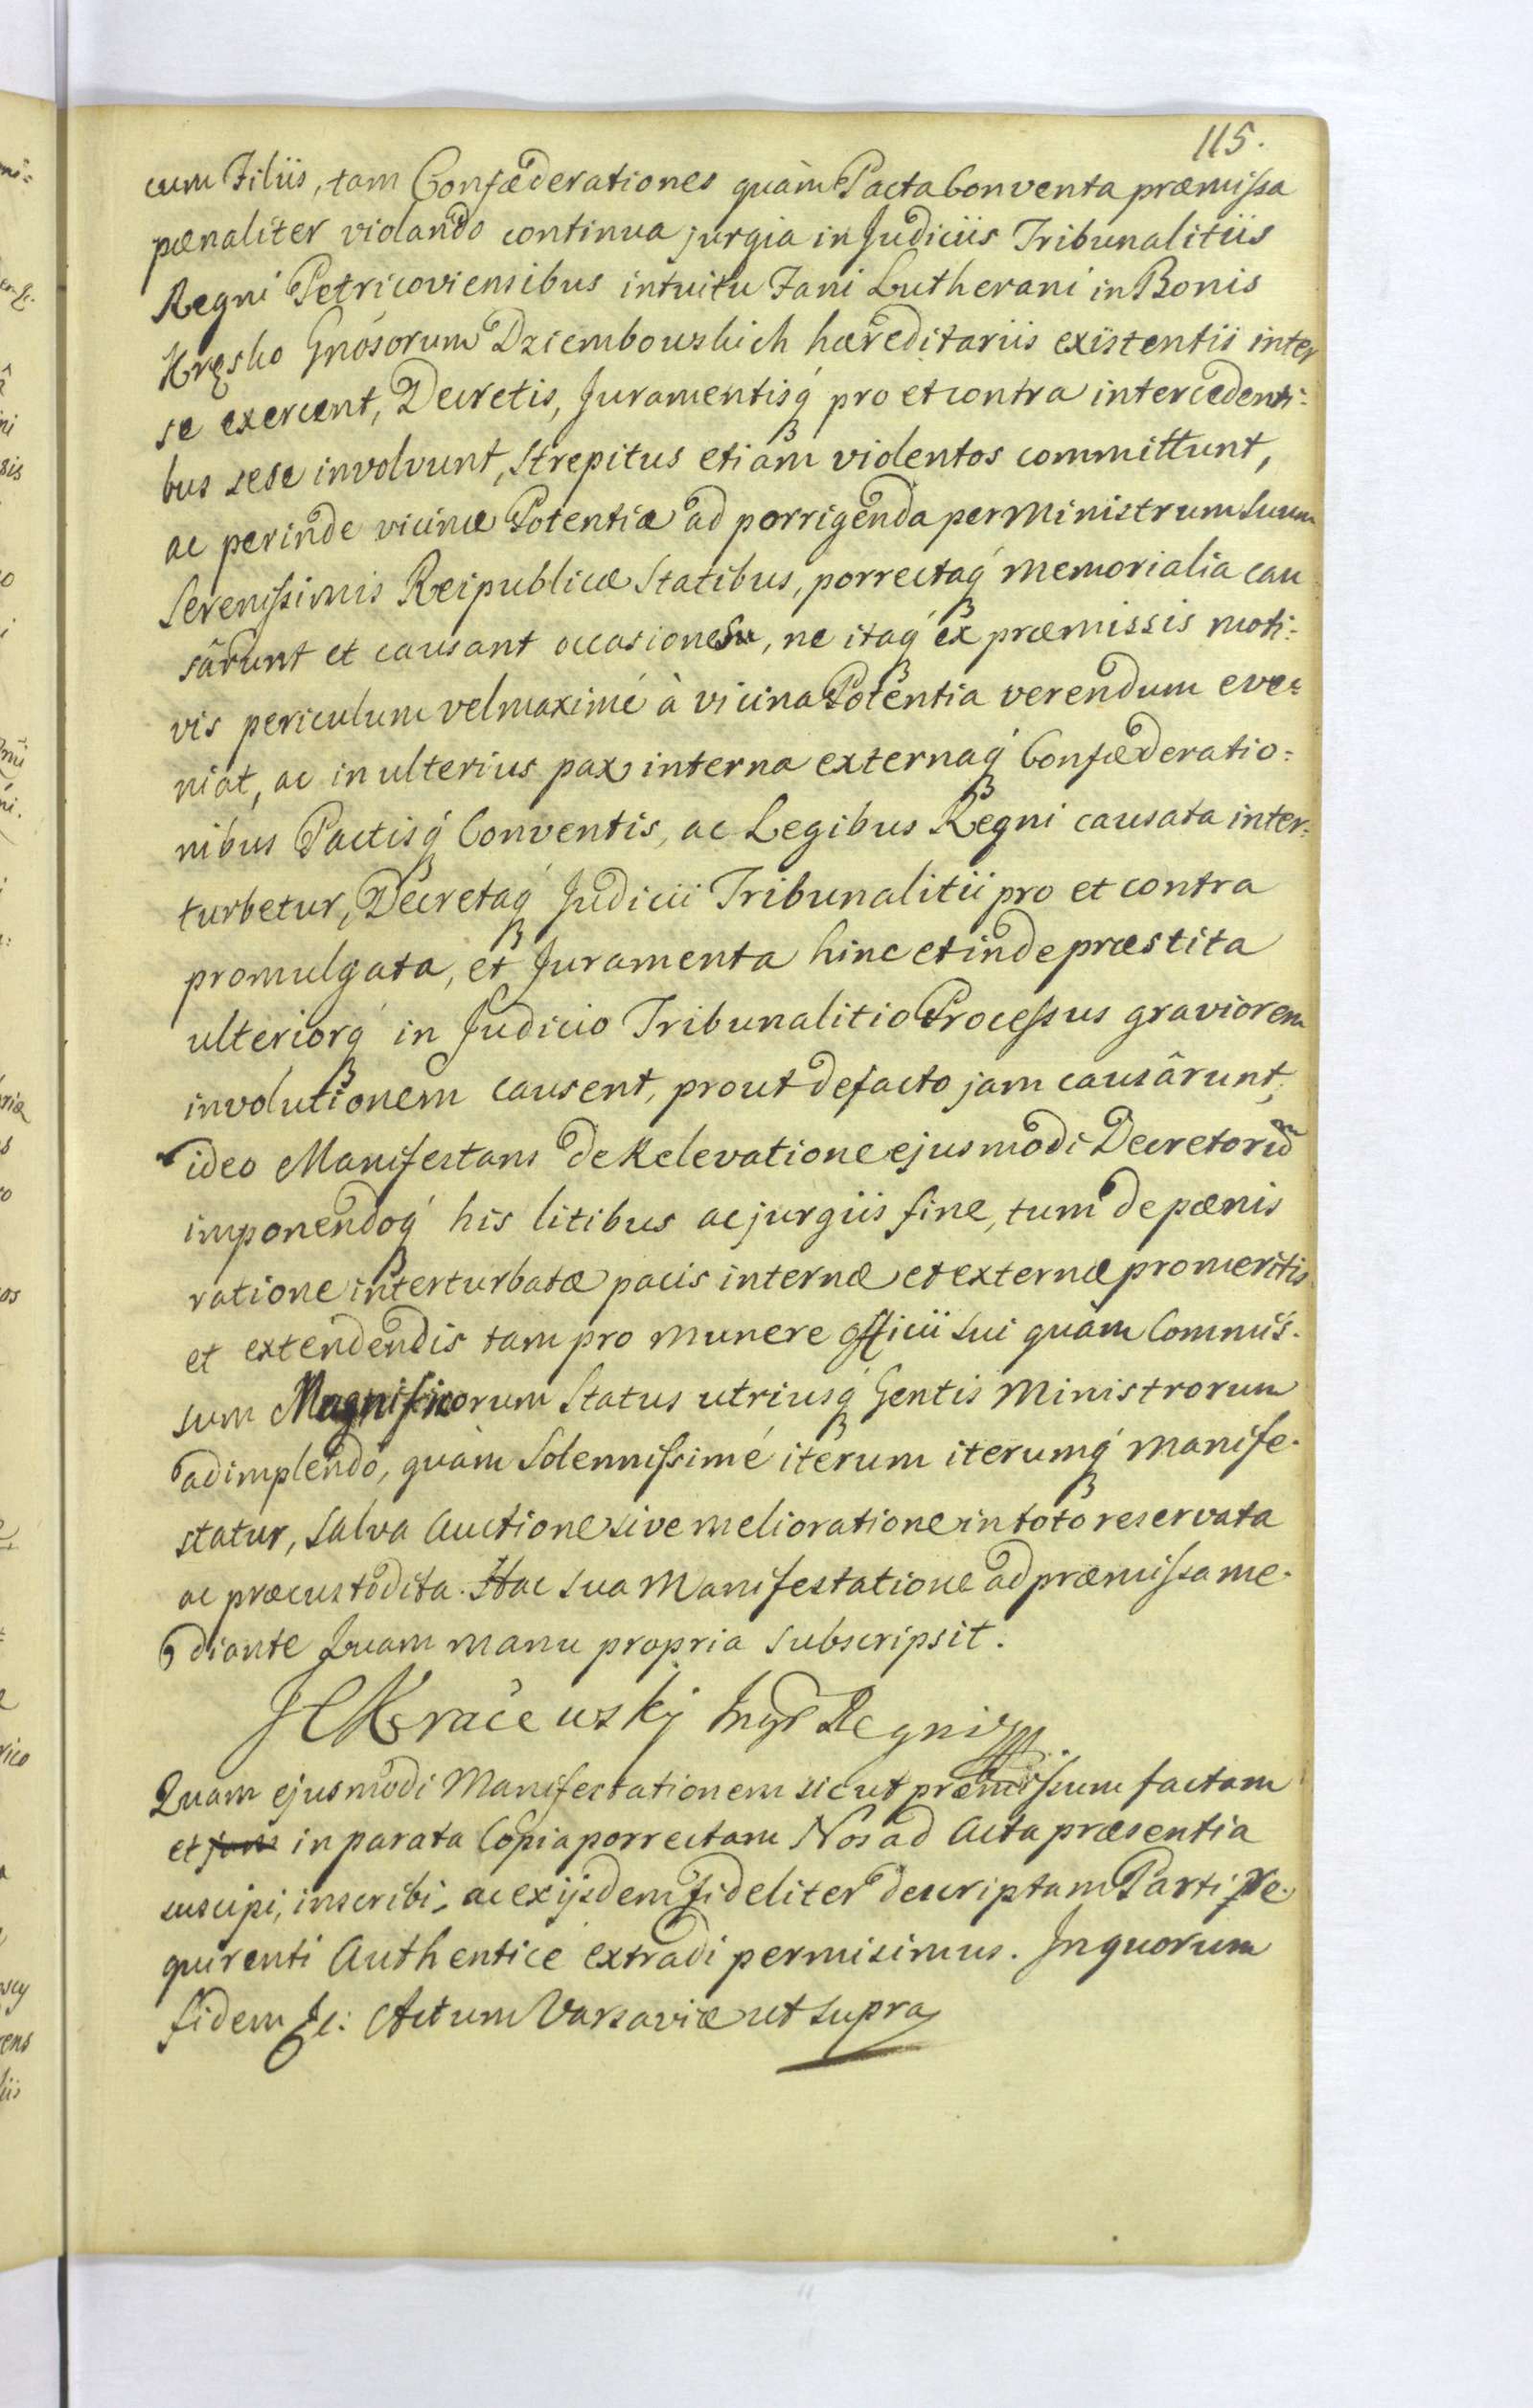 115.
cum Filiis, tam Confæderationes quàm Pacta Conventa præmissa
pænaliter violando continua jurgia in Judiciis Tribunalitiis
Regni Petricoviensibus intuitu Fani Lutherani in Bonis
Kręsko Gnósorum Dziembowskich hæreditariis existentis inter
se exercent, Decretis, Juramentisq́ pro et contra intercedenti:
bus sese involvunt, strepitus etiam violentos committunt,
ac perinde vicinæ Potentiæ ad porrigenda per Ministrum suum
Serenissimis Reipublicæ Statibus, porrectaq́ memorialia cau
sârunt et causant occasiones, ne itaq́ ex præmissis moti:
vis periculum vel maximé à vicina Potentia verendum eve:
niat, ac in ulterius pax interna externaq́ Confæderatio:
nibus Pactisq́ Conventis, ac Legibus Regni causata inter:
turbetur, Decretaq́ Judicii Tribunalitii pro et contra
promulgata, et Juramenta hinc et inde præstita
ulteriorq́ in Judicio Tribunalitio Processus graviorem
involutionem causent, prout de facto jam causârunt,
ideo Manifestans de Relevatione ejusmodi Decretorũ
imponendoq́ his litibus ac jurgiis fine, tum de pænis
ratione interturbatæ pacis internæ et externæ promeritis
et extendendis tam pro munere officii sui quàm Commis-
sum Magnificorum Status utriusq́ Gentis Ministrorum
adimplendo, quàm Solennissimé iterum iterumq́ manife-
statur, salva Auctione sive melioratione in toto reservata
ac præcustodita. Hac sua Manifestatione ad præmissa me-
diante Quam manu propria subscripsit.
Regni
Quam ejusmodi Manifestationem sicut præmissum factam
et in parata Copia porrectam Nos ad Acta præsentia
suscipi, inscribi, ac ex ijsdem fideliter descriptam Parti re-
quirenti Authenticé extradi permisimus. In quorum
fidem &c: Actum Varsaviæ ut supra